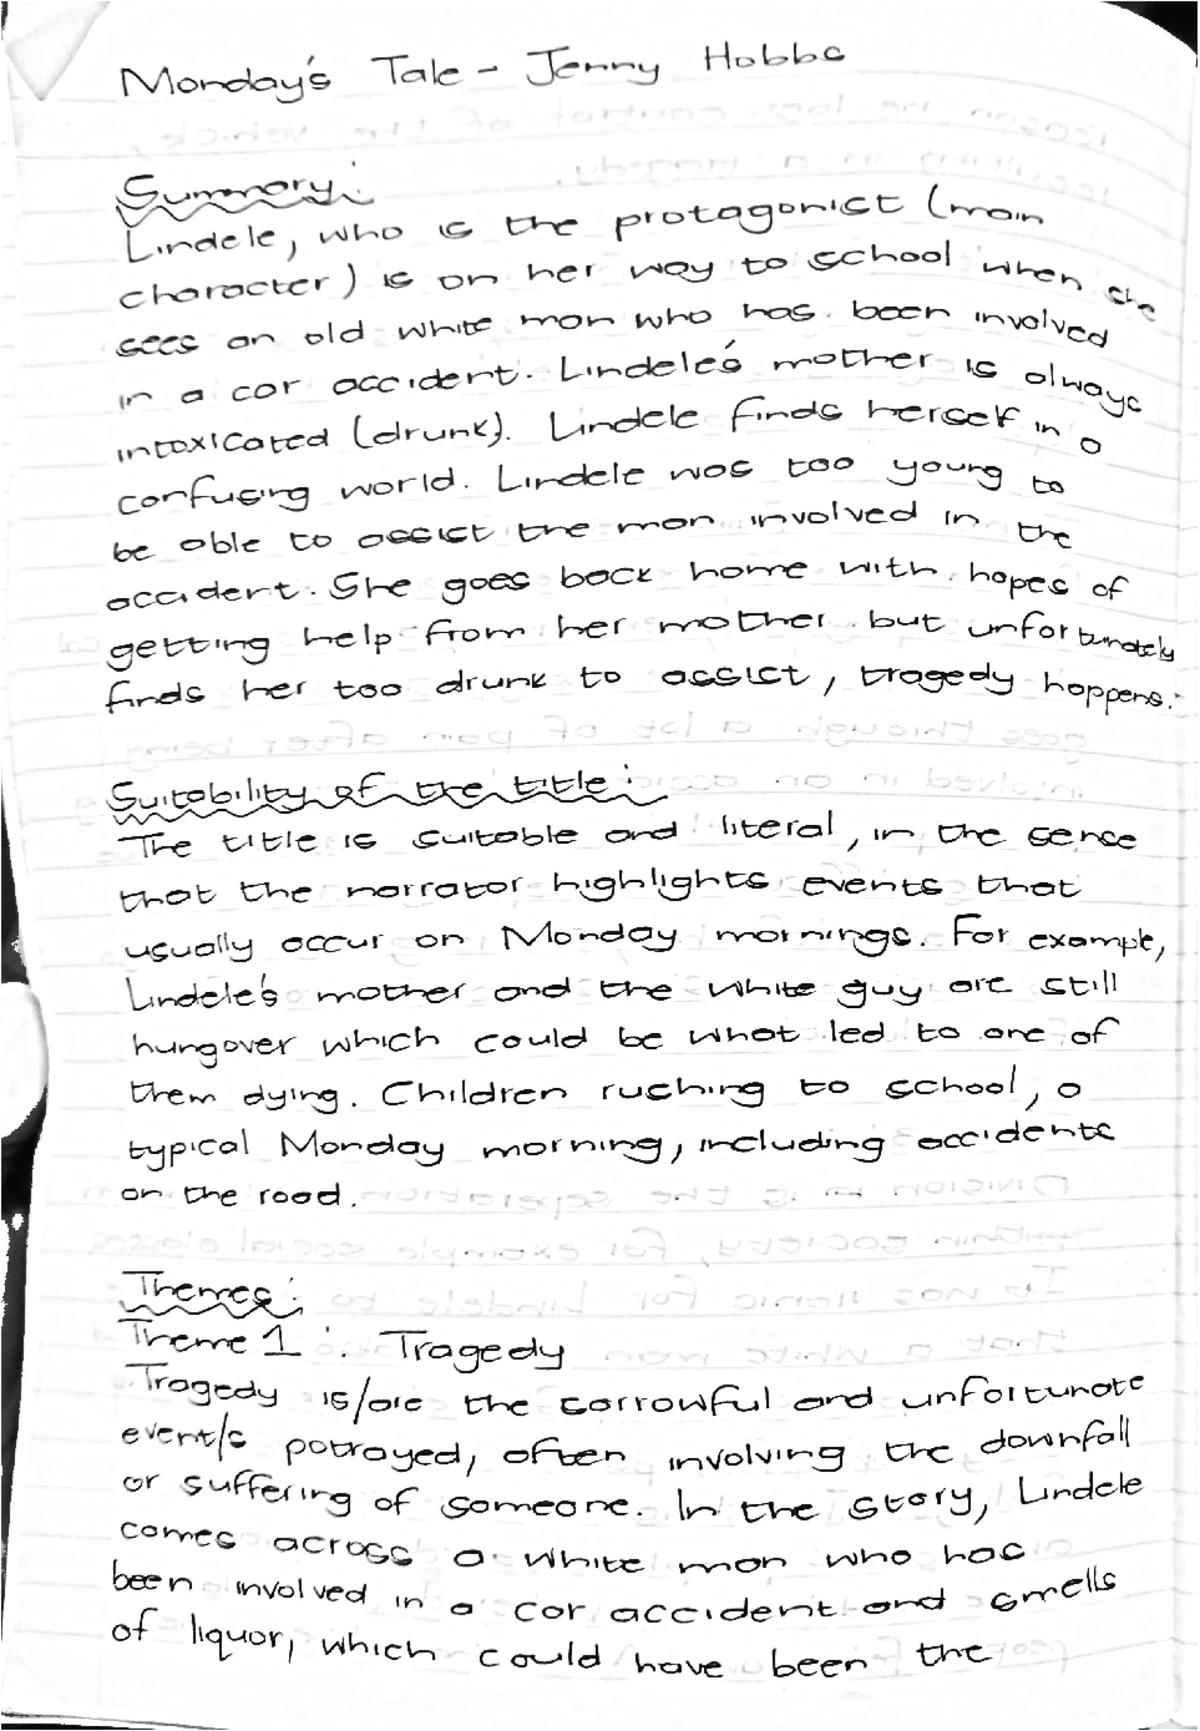 Monday's Tale - Jenny Hobbs
Summary:
Lindele, who is the protagonist (main
character) is on her way to school when she
sees an old white man who has been involved
in a car accident. Lindele's mother is always
intoxicated (drunk). Lindele finds herself in a
confusing world. Lindele was too young to
be able to assist the man involved in the
accident. She goes back home with hopes of
getting help from her mother but unfortunately
finds her too drunk to assist, tragedy happens.
Suitability of the title:
The title is suitable and literal, in the sense
that the narrator highlights events that
usually occur on Monday mornings. For example,
Lindele's mother and the white guy are still
hungover which could be what led to one of
them dying. Children rushing to school, a
typical Monday morning, including accidents
on the road.
Themes:
Theme 1 : Tragedy
Tragedy is/are the sorrowful and unfortunate
event/s potrayed, often involving the downfall
or suffering of someone. In the story, Lindele
comes across a white man who has
been involved in a car accident and smells
of liquor, which could have been the